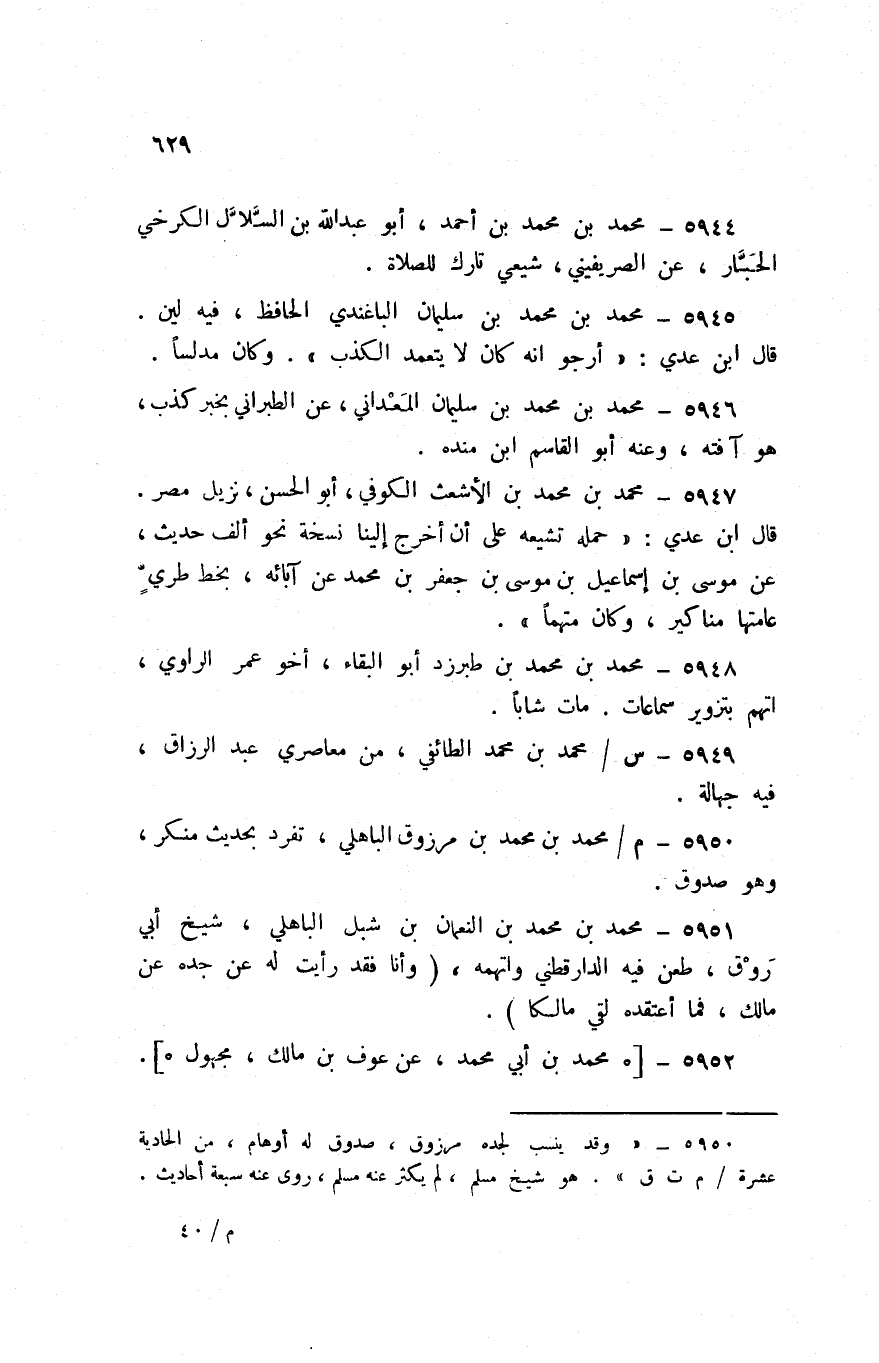 ٦٢٩
٥٩٤٤ ـ محمد بن محمد بن أحمد ، أبو عبدالله بن السَّلاَّل الكرخي
الحَبَّار ، عن الصريفيني ، شيعي تارك للصلاة .
٥٩٤٥ ـ محمد بن محمد بن سليمان الباغندي الحافظ ، فيه لين .
قال ابن عدي : « أرجو انه كان لا يتعمد الكذب » . وكان مدلساً .
٥٩٤٦ ـ محمد بن محمد بن سليمان المَعْداني ، عن الطبراني بخبر كذب ،
هو آفته ، وعنه أبو القاسم ابن منده .
٥٩٤٧ ـ محمد بن محمد بن الأشعث الكوفي ، أبو الحسن ، نزيل مصر .
قال ابن عدي : « حمله تشيعه على أن أخرج إلينا نسخة نحو ألف حديث ،
عن موسى بن إسماعيل بن موسى بن جعفر بن محمد عن آبائه ، بخط طريٍّ
عامتها مناكير ، وكان متهماً » .
٥٩٤٨ ـ محمد بن محمد بن طبرزد أبو البقاء ، أخو عمر الراوي ،
اتهم بتزوير سماعات . مات شاباً .
٥٩٤٩ ـ س / محمد بن محمد الطائفي ، من معاصري عبد الرزاق ،
فيه جهالة .
٥٩٥٠ ـ م / محمد بن محمد بن مرزوق الباهلي ، تفرد بحديث منكر ،
وهو صدوق .
٥٩٥١ ـ محمد بن محمد بن النعمان بن شبل الباهلي ، شيخ أبي
رَوْق ، طعن فيه الدارقطني واتهمه ، ( وأنا فقد رأيت له عن جده عن
مالك ، فما أعتقده لقي مالكا ) .
٥٩٥٢ ـ [٥ محمد بن أبي محمد ، عن عوف بن مالك ، مجهول ٥] .
٥٩٥٠ ـ « وقد ينسب لجده مرزوق ، صدوق له أوهام ، من الحادية
عشرة / م ت ق » . هو شيخ مسلم ، لم يكثر عنه مسلم ، روى عنه سبعة أحاديث .
م/٤٠